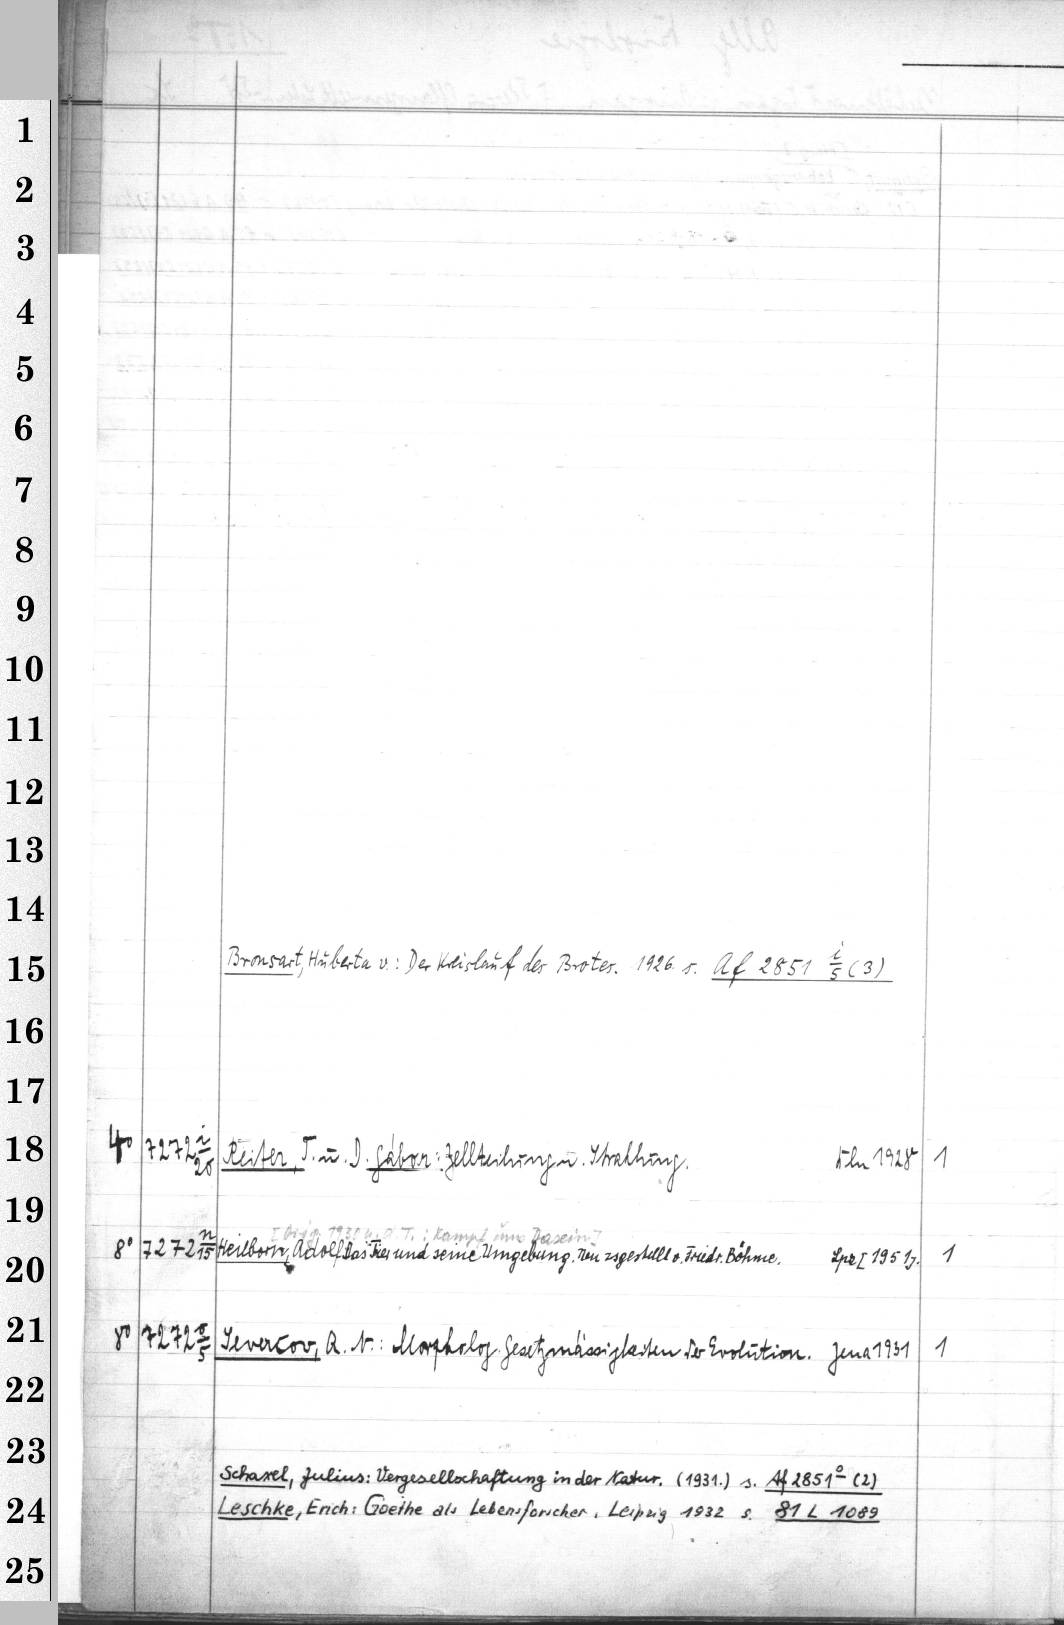 1
2
3
4
5
6
7
8
9
10
11
12
13
14
15
Bronsart, Huberta v.: Der Kreislauf des Brotes. 1926. s. Af 2851 i/5 (3)
16
17
18
4° 7272 i/20 Reiter, T. u. D. Gábor: Zellteilung u. Strahlung. Bln 1928 1
19
[Orig. 1930 u. d. T.: Kampf ums Dasein]
20
8° 7272 n/15 Heilborn, Adolf: Das Tier und seine Umgebung. Neu zsgestellt v. Friedr. Böhme. Lpz [1951]. 1
21
8° 7272 o/5 Severcov, A. N.: Morpholog. Gesetzmässigkeiten der Evolution. Jena 1931 1
22
23
Schaxel, Julius: Vergesellschaftung in der Natur. (1931.) s. Af 2851 o (2)
24
Leschke, Erich: Goethe als Lebensforscher. Leipzig 1932 s. 81 L 1089
25